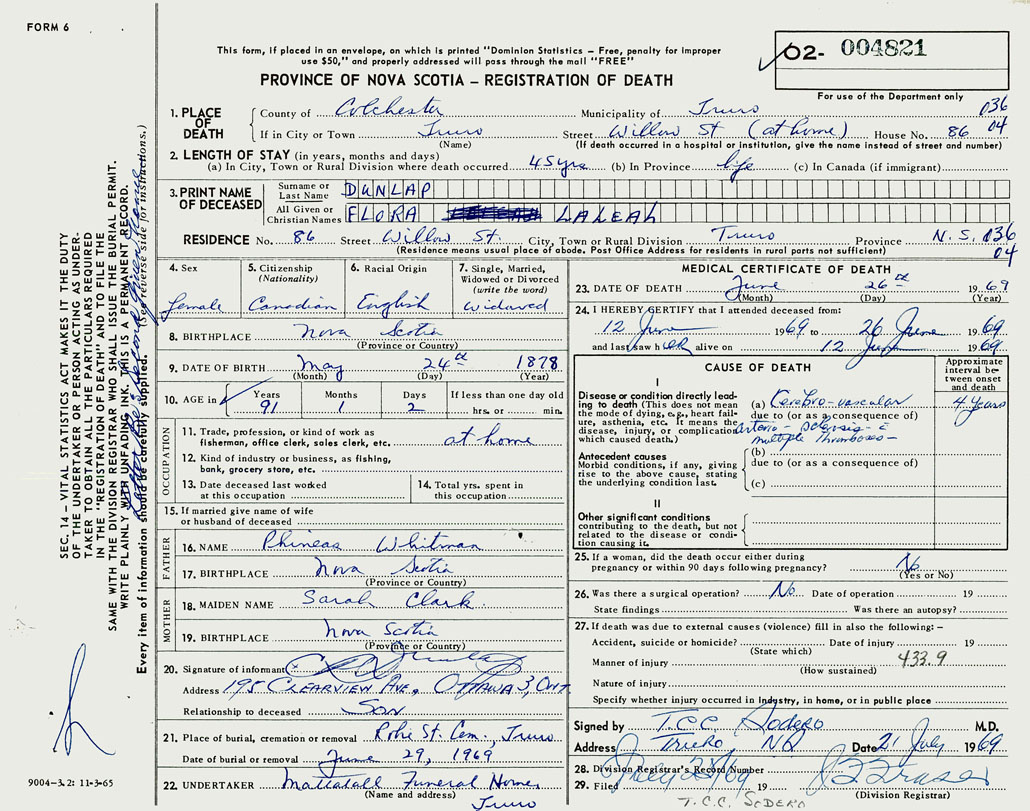 FORM 6
This form, if placed in an envelope, on which is printed "Dominion Statistics – Free, penalty for improper
use $50," and properly addressed will pass through the mail "FREE"
PROVINCE OF NOVA SCOTIA – REGISTRATION OF DEATH
02- 004821
For use of the Department only
036
04
1. PLACE OF DEATH
County of Colchester Municipality of Truro
If in City or Town Truro Street Willow St (at home) House No. 86
(Name) (If death occurred in a hospital or institution, give the name instead of street and number)
2. LENGTH OF STAY (in years, months and days)
(a) In City, Town or Rural Division where death occurred 45 yrs (b) In Province life (c) In Canada (if immigrant)
3. PRINT NAME OF DECEASED
Surname or Last Name DUNLAP
All Given or Christian Names FLORA LALEAH
RESIDENCE No. 86 Street Willow St. City, Town or Rural Division Truro Province N.S. 036
04
(Residence means usual place of abode. Post Office Address for residents in rural parts not sufficient)
4. Sex
female
5. Citizenship
(Nationality)
Canadian
6. Racial Origin
English
7. Single, Married,
Widowed or Divorced
(write the word)
widowed
8. BIRTHPLACE Nova Scotia
(Province or Country)
9. DATE OF BIRTH May 24th 1878
(Month) (Day) (Year)
10. AGE in
Years Months Days If less than one day old
91 1 2 hrs. or min.
OCCUPATION
11. Trade, profession, or kind of work as
fisherman, office clerk, sales clerk, etc. at home
12. Kind of industry or business, as fishing,
bank, grocery store, etc.
13. Date deceased last worked
at this occupation
14. Total yrs. spent in
this occupation
15. If married give name of wife
or husband of deceased
FATHER
16. NAME Phineas Whitman
17. BIRTHPLACE Nova Scotia
(Province or Country)
MOTHER
18. MAIDEN NAME Sarah Clark
19. BIRTHPLACE Nova Scotia
(Province or Country)
20. Signature of informant
Address 195 CLEARVIEW AVE, OTTAWA 3, ONT
Relationship to deceased Son
21. Place of burial, cremation or removal Robie St. Cem., Truro
Date of burial or removal June 29, 1969
22. UNDERTAKER Mattatall Funeral Home,
(Name and address) Truro
MEDICAL CERTIFICATE OF DEATH
23. DATE OF DEATH June 26th 1969
(Month) (Day) (Year)
24. I HEREBY CERTIFY that I attended deceased from:
12 June 1969 to 26 June 1969
and last saw her alive on 12 June 1969
CAUSE OF DEATH
Approximate
interval be-
tween onset
and death
I
Disease or condition directly lead-
ing to death (This does not mean
the mode of dying, e.g., heart fail-
ure, asthenia, etc. It means the
disease, injury, or complication
which caused death.)
(a) Cerebro-vascular 4 Years
due to (or as a consequence of)
arterio-sclerosis c̄
multiple thromboses–
Antecedent causes
Morbid conditions, if any, giving
rise to the above cause, stating
the underlying condition last.
(b)
due to (or as a consequence of)
(c)
II
Other significant conditions
contributing to the death, but not
related to the disease or condi-
tion causing it.
25. If a woman, did the death occur either during
pregnancy or within 90 days following pregnancy? No
(Yes or No)
26. Was there a surgical operation? No Date of operation 19
State findings Was there an autopsy?
27. If death was due to external causes (violence) fill in also the following: –
Accident, suicide or homicide? Date of injury 19
(State which)
Manner of injury 433.9
(How sustained)
Nature of injury
Specify whether injury occurred in Industry, in home, or in public place
Signed by T.C.C. Sodero M.D.
Address Truro, NS Date 21 July 1969
28. Division Registrar's Record Number
29. Filed 19
(Division Registrar)
T.C.C. SODERO
SEC. 14 – VITAL STATISTICS ACT MAKES IT THE DUTY
OF THE UNDERTAKER OR PERSON ACTING AS UNDER-
TAKER TO OBTAIN ALL THE PARTICULARS REQUIRED
IN THE "REGISTRATION OF DEATH" AND TO FILE THE
SAME WITH THE DIVISION REGISTRAR WHO SHALL ISSUE THE BURIAL PERMIT.
WRITE PLAINLY WITH UNFADING INK. THIS IS A PERMANENT RECORD.
Every item of information should be carefully supplied. (See reverse side for instructions.)
9004-3.2: 11-3-65